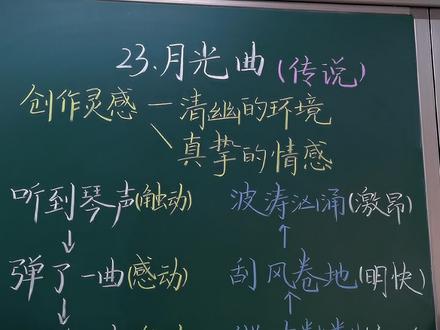 23.月光曲(传说)
创作灵感 — 清幽的环境
真挚的情感
听到琴声(触动) 波涛汹涌(激昂)
↓ ↑
弹了一曲(感动) 刮风卷地(明快)
↓ ↑